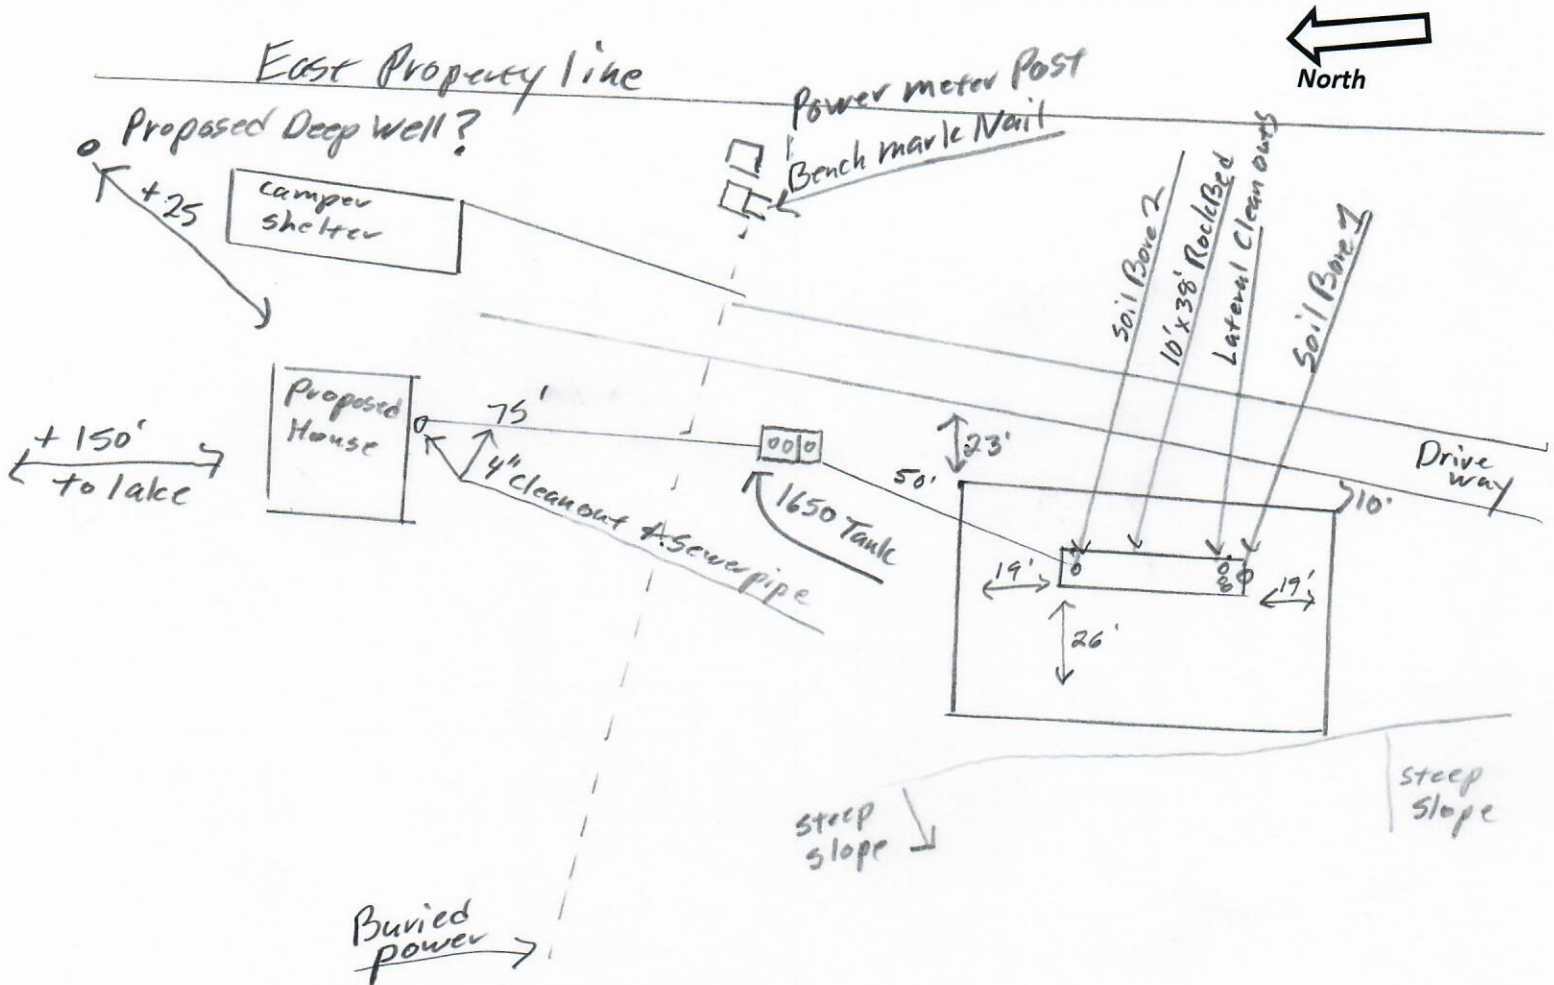 North
East Property line
Power meter Post
Bench mark Nail
Proposed Deep Well?
+25
camper
shelter
Soil Bore 2
10'x38' Rock Bed
Lateral Clean outs
Soil Bore 1
Proposed
House
75'
+150'
to lake
4" cleanout & Sewer pipe
1650 Tank
50'
23'
Drive
way
10'
19'
19'
26'
steep
slope
steep
slope
Buried
power